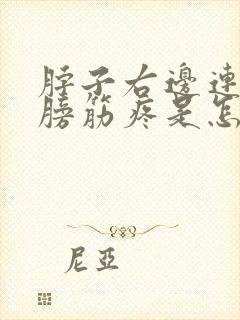 脖子右邊連
膀筋疼是怎
尼亞